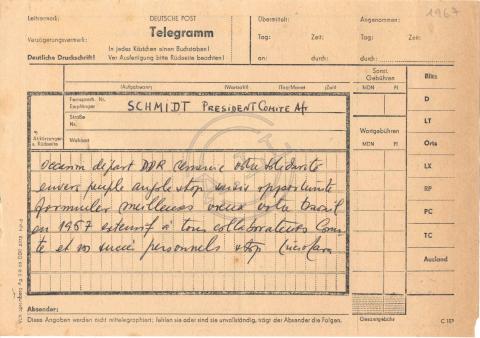 Leitvermerk:
DEUTSCHE POST
Übermittelt:
Angenommen:
1967
Telegramm
Verzögerungsvermerk:
Tag: Zeit:
Tag: Zeit:
In jedes Kästchen einen Buchstaben!
Deutliche Druckschrift!
Vor Ausfertigung bitte Rückseite beachten!
an: durch:
durch:
(Aufgabeort) (Wortzahl) (Tag/Monat) (Zeit)
Sonst. Gebühren
MDN Pf
Blitz
D
LT
Orts
LX
RP
PC
TC
Ausland
Wortgebühren
MDN Pf
Fernsprech. Nr.
Empfänger
SCHMIDT PRESIDENT COMITE Af
Straße
Nr.
Abkürzungen
s. Rückseite
Wohnort
Occasion départ DDR remercie votre solidarité
envers peuple angolais stop saisis opportunité
formuler meilleurs vœux votre travail
en 1967 extensif à tous collaborateurs Comi
té et vos succès personnels stop Lucio Lara
Absender:
Diese Angaben werden nicht mittelegraphiert; fehlen sie oder sind sie unvollständig, trägt der Absender die Folgen.
Gesamtgebühr